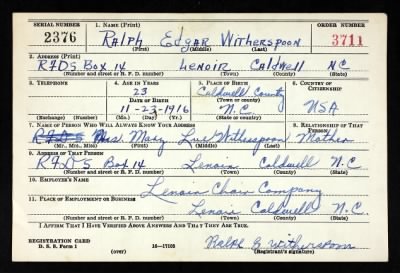 SERIAL NUMBER 1. NAME (Print) ORDER NUMBER
2376 Ralph Edgar Witherspoon 3711
(First) (Middle) (Last)
2. ADDRESS (Print)
RFD5 Box 14 Lenoir Caldwell NC
(Number and street or R. F. D. number) (Town) (County) (State)
3. TELEPHONE 4. AGE IN YEARS 5. PLACE OF BIRTH 6. COUNTRY OF CITIZENSHIP
23 Caldwell County
DATE OF BIRTH (Town or county) USA
11-23-1916 N.C.
(Exchange) (Number) (Mo.) (Day) (Yr.) (State or country)
7. NAME OF PERSON WHO WILL ALWAYS KNOW YOUR ADDRESS 8. RELATIONSHIP OF THAT PERSON
Mrs. Mary Witherspoon Mother
(Mr., Mrs., Miss) (First) (Middle) (Last)
9. ADDRESS OF THAT PERSON
RFD5 Box 14 Lenoir Caldwell N.C.
(Number and street or R. F. D. number) (Town) (County) (State)
10. EMPLOYER'S NAME
Lenoir Chair Company
11. PLACE OF EMPLOYMENT OR BUSINESS
Lenoir Caldwell N.C.
(Number and street or R. F. D. number) (Town) (County) (State)
I AFFIRM THAT I HAVE VERIFIED ABOVE ANSWERS AND THAT THEY ARE TRUE.
REGISTRATION CARD
D. S. S. Form 1 (over) 16—17105 Ralph E. Witherspoon